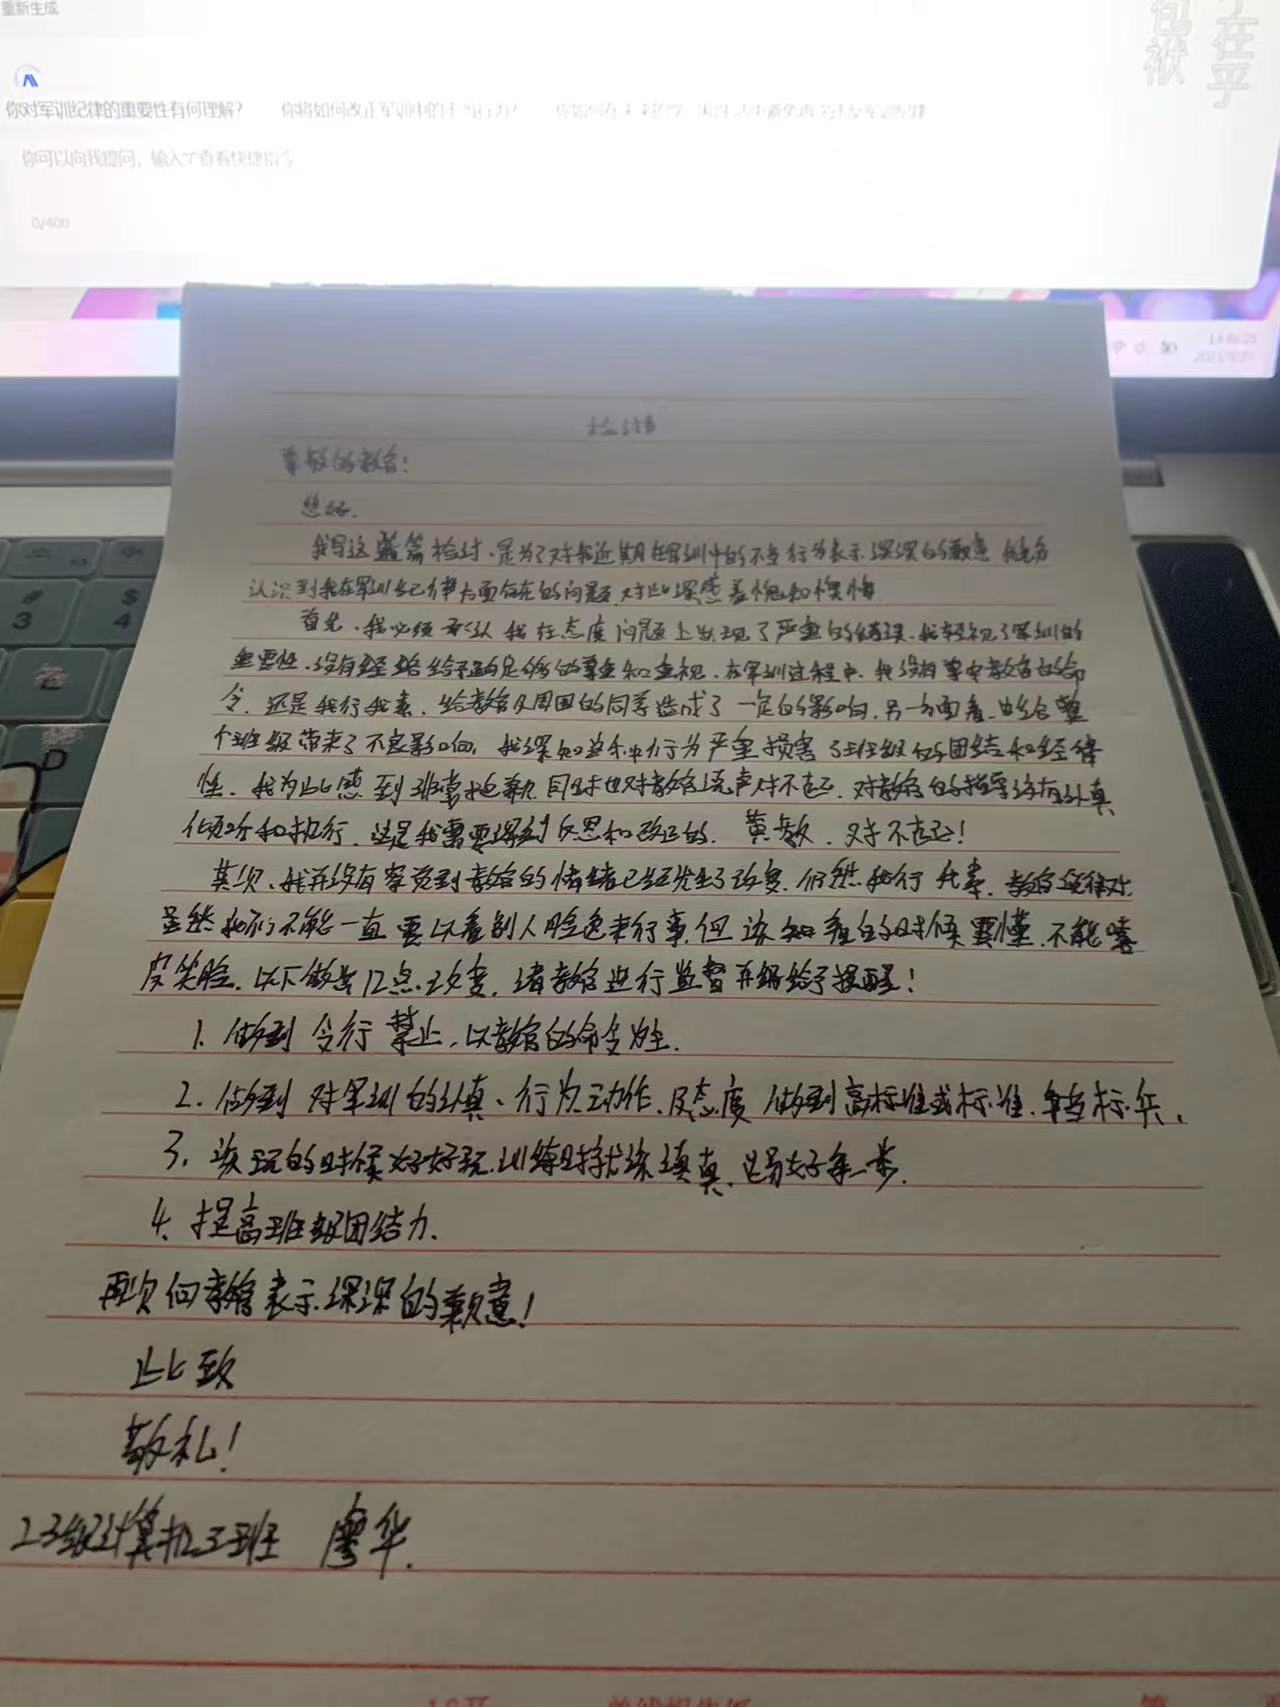 重新生成
在乎
包袱
你对军训纪律的重要性有何理解？ 你将如何改正军训中的不当行为？
你可以向我提问，输入"/"查看快捷指令
0/400
检讨书
尊敬的教官：
您好.
我写这篇检讨、是为了对我近期在军训中的不当行为表示深深的歉意
认识到我在军训纪律方面存在的问题.对此深感羞愧和懊悔
首先、我必须承认我在态度问题上出现了严重的错误、我轻视了军训的
重要性、没有给予足够的尊重和重视、在军训过程中、我没有尊守教官的命
令、还是我行我素、给教官及周围的同学造成了一定的影响、另一方面看、也给整
个班级带来了不良影响、我深知这种行为严重损害了班级的团结和纪律
性、我为此感到非常抱歉 同时也对教官说声对不起、对教官的指导没有认真
倾听和执行、这是我需要深刻反思和改正的、 黄教、对不起！
其次、我并没有察觉到教官的情绪已经发生了改变、仍然我行我素、教官说得对
虽然我们不能一直要以看别人脸色来行事、但该知道的时候要懂、不能嘻
皮笑脸、以下做出几点改变、请教官进行监督并给予提醒！
1、做到令行禁止、以教官的命令为主.
2、做到对军训的认真、行为、动作、及态度做到高标准或标准、争当标兵、
3、该玩的时候好好玩、训练时就该认真、站好每一步.
4、提高班级团结力.
再次向教官表示深深的歉意！
此致
敬礼！
23级计算机三班 廖华.